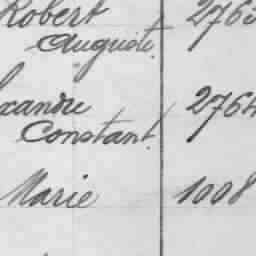 Robert 2763
Auguste.
xandre 2764
Constant.
Marie 1008